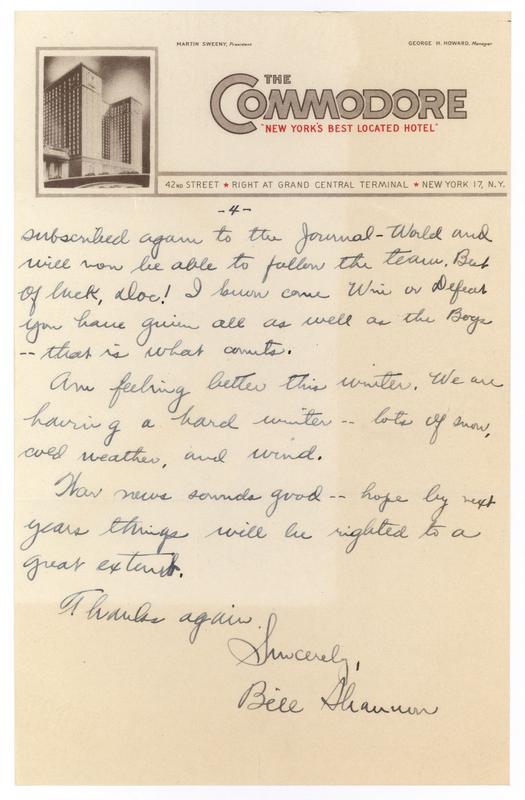 MARTIN SWEENY, President
GEORGE H. HOWARD, Manager
THE
COMMODORE
"NEW YORK'S BEST LOCATED HOTEL"
42ND STREET ★ RIGHT AT GRAND CENTRAL TERMINAL ★ NEW YORK 17, N.Y.
-4-
subscribed again to the Journal-World and
will now be able to follow the team. Best
Of luck, Doc! I know come Win or Defeat
you have given all as well as the Boys
-- that is what counts.
Am feeling better this winter. We are
having a hard winter -- lots of snow,
cold weather, and wind.
War news sounds good -- hope by next
years things will be righted to a
great extent.
Thanks again.
Sincerely,
Bill Shannon